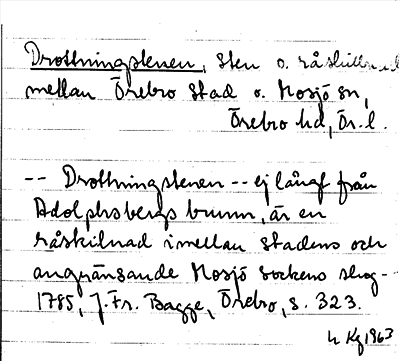 Drottningstenen, sten o. råskillnad
mellan Örebro stad o. Mosjö sn,
Örebro hd, Ör. l.
-- Drottningstenen -- ej långt från
Adolphsbergs brunn, är en
råskilnad imellan stadens och
angränsande Mosjö sockens skog -
1785, J. Fr. Bagge, Örebro, s. 323.
Kg 1963